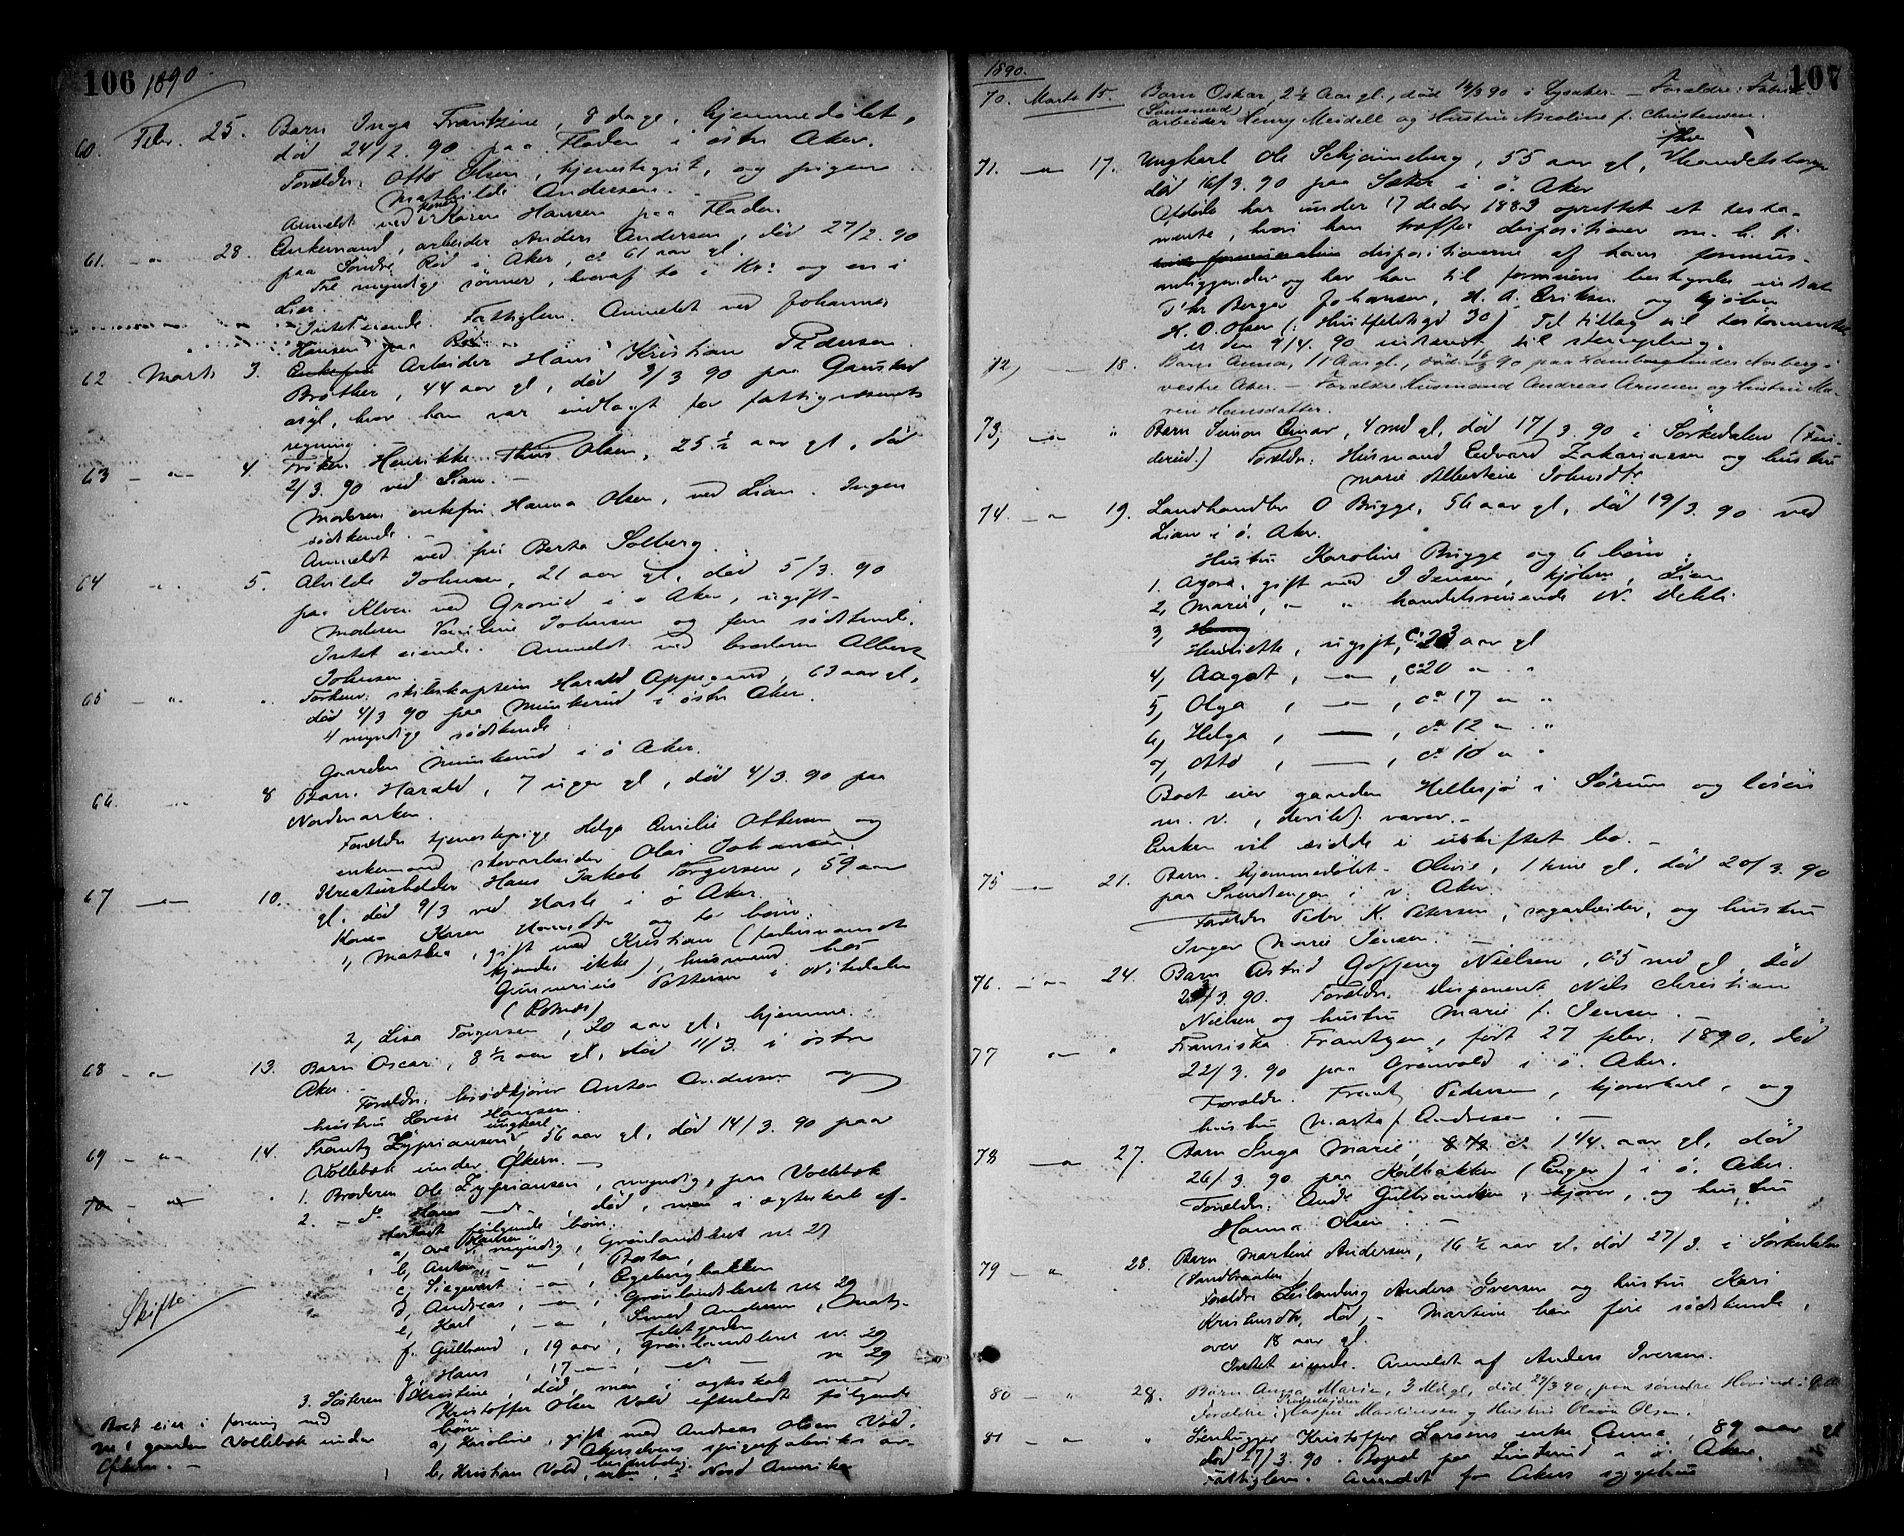 106 1890
60. Febr. 25. Barn Inga Frantzine, 8 dage, hjemmedøbt,
død 24/2. 90 paa Fladen i østre Aker.
Forældre: Otto Olsen, tjenestegut, og pigen
Mathilde Andersen.
Anmeldt ved Karen Hansen paa Fladen
61. - " - 28. Enkemand, arbeider Anders Andersen, død 27/2. 90
paa Søndre Rød i Aker, ca 61 aar gl.
Tre myndige sønner, hvoraf to i Kr: og en i
Lier.
Intet eiende. Fattiglem. Anmeldt ved Johannes
Hansen paa
62 Marts 3. Enkefru Arbeider Hans Kristian Pedersen
Bråthen, 44 aar gl, død 3/3 90 paa Gaustad
asyl, hvor han var indlagt for fattigvæsenets
regning.
63 - " - 4. Frøken Henrikke Thus Olsen, 25 ½ aar gl, død
2/3. 90 ved Lian. -
Moderen enkefru Hanna Olsen, ved Lian. Ingen
sødskende. -
Anmeldt ved fru Berta Solberg.
64 - " - 5. Alvilde Johnsen, 21 aar gl, død 5/3. 90
paa Kloven ved Grorud i ø Aker, ugift -
Moderen Johnsen og fem sødskende.
Intet eiende. Anmeldt ved broderen Albert
Johnsen
65 - " . Forhenv: skibskaptein Harald Oppegaard, 63 aar gl,
død 4/3 90 paa Munkerud i østre Aker.
4 myndige sødskende
Gaarden Munkerud i ø Aker.
66. 8 Barn Harald, 7 uger gl, død 4/3. 90 paa
Nordmarken.
Forældre tjenestepige Helga Emilie Ottersen og
enkemand skovarbeider Olai Johansen.
67 - " - 10. Kreaturhandler Hans Jakob Torgersen, 59 aar
gl. død 9/3 ved Hasle i ø Aker.
Kone Karen Hansdtr og to børn:
1, Mathea, gift med Kristian (farsnavnet
kjendes ikke), husmand hos
Gunnerius Pettersen i Nitedalen
2, Lisa Torgersen, 20 aar gl, hjemme.
68 - " - 13. Barn Oscar, 8 ½ aar gl, død 11/3. i østre
Aker. -
Forældre: brødkjører Anton Andersen og
hustru Lovise Hansen.
69 - " - 14. Frantz Zyprianssen ungkarl, 56 aar gl, død 14/3. 90 paa
Vollebæk under Økern. -
70 - " - 1. Broderen Ole Zyprianssen, myndig, paa Vollebæk
2. - do Hans - " - , død, men i ægteskab ef-
terladt følgende børn:
a, Ove Hansen, myndig, Grønlandsleret no 29
b, Anton, - " - , Boston
c, Siegvart, - " - , Egebergbakken
d, Andreas, - " - , Grønlandsleret no 29
e, Karl, - " - , Smed Andersen,
f. Gulbrand, 19 aar, Grønlandsleret no. 29
g, Hans, 17 - " - , do - no 29
3. Søsteren Kristine, død, men i ægteskab med
Kristoffer Olsen Vold efterladt følgende
børn:
a, Karoline, gift med Andreas Olsen Vold,
Akerselvens spigerfabriks ar-
beiderbolig
b, Kristian Vold, i Nord Amerika
Skifte
Boet eier i forening med
no 1 gaarden Vollebæk under
Økern. -
1890. 107
70. Marts 15. Barn Oskar, 2 ½ Aar gl., død 14/3 90 i Lysaker. - Forældre: Fabrik-
arbeider Henry Meidell og Hustru Nicoline f. Christensen.
71. - " - 17. Ungkarl Ole Schjønneberg, 55 aar gl, Handelsborger
død 16/3. 90 paa Sæter i ø. Aker
Afdøde har under 17 decbr 1883 oprettet et testa-
mente, hvori han træffer dispositioner om.
dispositionerne af hans formues-
anliggender og har han til formuens bestyrelse indsat
Thr Berger Johansen, H. A. Eriksen og kjøbm
H. O. Olsen (: Huitfeldtsgd 30) Et tillæg til testamentet
er den 9/4. 90 indsendt til stempling.
72, - 18. Barn Anna, 11 Aar gl, død 16/3 90 paa Hamborg under Norberg i
vestre Aker. - Forældre Husmand Andreas Arnesen og Hustru Ma-
ren Hansdatter.
73, - " - " Barn Simon Einar, 4 md gl, død 17/3 90 i Sørkedalen (Fin-
derud.) Forældre: Husmand Edvard Zakariassen og hustru
Marie Albertine Johnsdtr.
74. - " - 19. Landhandler O Brigge, 56 aar gl, død 19/3. 90 ved
Lian i ø. Aker.
Hustru Karoline Brigge og 6 børn:
1. Agora, gift med J Jensen, kjøbm, Lian
2, Marie, - " - " handelsreisende N. Dehli
3, Henny
Henriette, ugift, ca 23 aar gl
4, Aagot, - " - , ca 20 " "
5, Olga, - " - , ca 17 " "
6, Helga, - , ca 12 " "
7, Otto, - , ca 10 " "
Boet eier gaarden Hellesjø i Sørum og løsøre
m. v., deribl. varer. -
Enken vil sidde i uskiftet bo. -
75 - " - 21. Barn - Hjemmedøbt - Oline, 1 time gl, død 20/3. 90
paa i v. Aker
Forældre Peter K. Petersen, sagarbeider, og hustru
Inger Marie Jensen.
76. - " - 24. Barn Astrid Goffeng Nielsen, 0.5 md gl, død
/3. 90. Forældre: Disponent Nils Christian
Nielsen og hustru Marie f. Jensen. -
77 - " - " Franziska Frantzen, født 27 febr. 1890, død
22/3. 90 paa Grønvold i ø. Aker.
Forældre. Frantz Pedersen, kjørerkarl, og
hustru Marta f Andresen. -
78 - " 27. Barn Inga Marie, ca 1 ¼ aar gl, død
26/3. 90 paa Kalbakken (Enger) i ø. Aker.
Forældre: Gulbrandsen, kjører, og hustru
Hanna Olsen. -
79 - " - 28. Barn Martine Andersen, 16 ½ aar gl, død 27/3. i Sørkedalen
(Sandbraaten)
Forældre Leilending Anders Iversen og hustru Kari
Kristiansdtr, død, - Martine har fire sødskende,
over 18 aar gl.
Intet eiende. Anmeldt af Anders Iversen.
80 - " - 28. Barn Anna Marie, 3 Md gl, død 27/3 90, paa søndre Hovind i Ø. A.
Forældre: Kasper Martinsen og Hustru Olava Olsen.
81 - " - " Stenhugger Kristoffer Larsens enke Anna, 89 aar gl
død 27/3. 90. Bopæl paa Linderud i ø. Aker.
Fattiglem. Anmeldt fra Akers sygehus